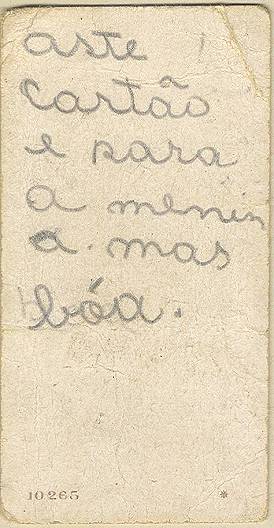 aste
cartão
e para
a menin
a. mas
bóa.
10265
*